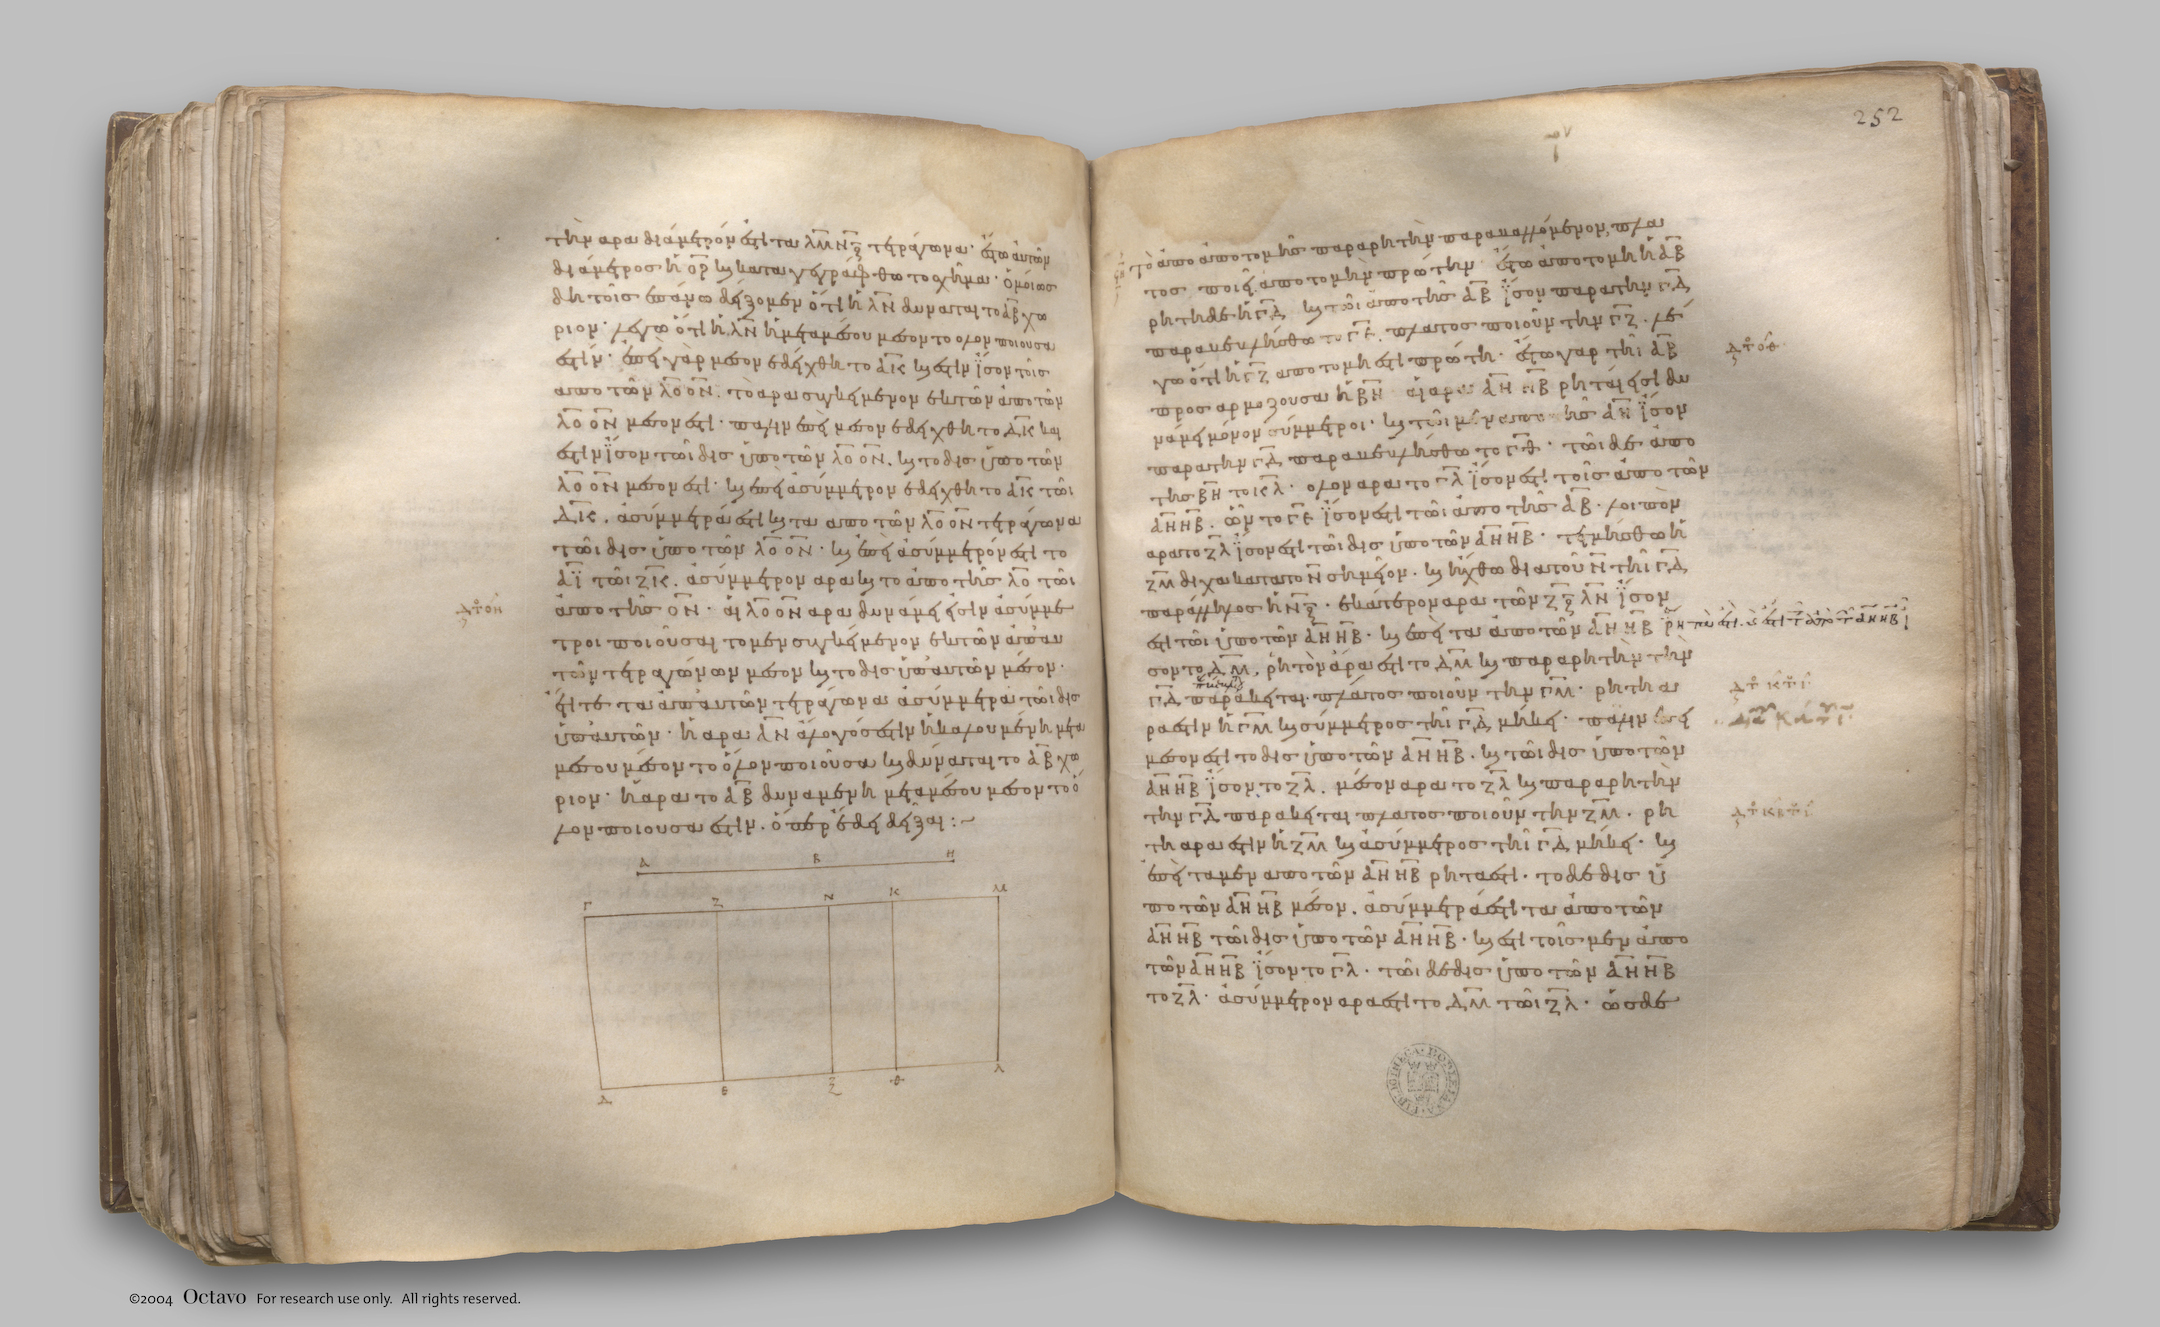 την αρα διάμετρόν ἐστι τα ΛΜ ΝΞ τετράγωνα· ἔστω ἀυτῶν
διάμετρος ἡ ΟΡ καὶ καταγεγράφθω το σχῆμα· ὁμοίως
δὴ τοῖς ἐπάνω δείξομεν ὅτι ἡ ΛΝ δυναται το ΑΒ χω
ριον· λέγω ὅτι ἡ ΛΝ ἡ μετα μέσου μέσον το ολον ποιουσα
ἐστίν· ἐπεὶ γὰρ μέσον ἐδείχθη το ΑΚ καὶ ἐστιν ἴσον τοῖς
απο τῶν ΛΟ ΟΝ. τὸ αρα συγκείμενον εκ τῶν ἀπο τῶν
ΛΟ ΟΝ μέσον ἐστι· παλιν ἐπεὶ μέσον εδείχθη το ΔΚ και
ἐστιν ἴσον τῶι δις ὑπο τῶν ΛΟ ΟΝ. καὶ το δις ὑπο τῶν
ΛΟ ΟΝ μέσον ἐστι· καὶ ἐπεὶ ἀσύμμετρον εδείχθη το ΑΚ τῶι
ΔΚ. ἀσύμμετρά ἐστι καὶ τα απο τῶν ΛΟ ΟΝ τετράγωνα
τῶι δις ὑπο τῶν ΛΟ ΟΝ· καὶ ἐπεὶ ἀσύμμετρόν ἐστι το
ΑΙ τῶι ΖΚ. ἀσύμμετρον αρα καὶ το ἀπο τῆς ΛΟ τῶι
ἀπο τῆς ΟΝ· ἁι ΛΟ ΟΝ αρα δυνάμει ἐισιν ἀσύμμε
τροι ποιοῦσαι το μεν συγκείμενον εκ τῶν ἀπ' αυ
τῶν τετραγώνων μέσον καὶ το δις ὑπ' αυτῶν μέσον·
ἔτι τε τα ἀπ' αυτῶν τετράγωνα ἀσύμμετρα τῶι δις
ὑπ' αυτῶν· ἡ αρα ΛΝ ἄλογός ἐστιν ἡ καλουμένη μετα
μέσου μέσον το ὅλον ποιοῦσα καὶ δύναται το ΑΒ χω
ριον· ἡ αρα το ΑΒ δυναμενη μετα μέσου μέσον το ὅ
λον ποιουσα ἐστιν. ὅπερ ἔδει δεῖξαι:~
Α Β Η
Γ Ζ Ν Κ Μ
Δ Ε Ξ Θ Λ
252
Τὸ ἀπο ἀποτομῆς παρα ρητὴν παραβαλλόμενον, πλα
τος ποιεῖ ἀποτομὴν πρώτην· ἔστω ἀποτομὴ ἡ ΑΒ
ρητὴ δε ἡ ΓΔ καὶ τῶι ἀπο τῆς ΑΒ ἴσον παρα την ΓΔ
παραβεβλήσθω το ΓΕ. πλατος ποιοῦν την ΓΖ. λέ
γω ὅτι ἡ ΓΖ αποτομή ἐστι πρώτη· ἔστω γαρ τῆι ΑΒ
προσαρμοζουσα ἡ ΒΗ αἱ αρα ΑΗ ΗΒ ρηταί εἰσι δυ
νάμει μόνον σύμμετροι· καὶ τῶι μὲν απο τῆς ΑΗ ἴσον
παρα την ΓΔ παραβεβλήσθω το ΓΘ· τῶι δε ἀπο
της ΒΗ το ΚΛ· ολον αρα το ΓΛ ἴσον ἐστι τοῖς ἀπο τῶν
ΑΗ ΗΒ. ὧν το ΓΕ ἴσον ἐστι τῶι ἀπο τῆς ΑΒ· λοιπὸν
αρα το ΖΛ ἴσον ἐστι τῶι δις ὑπο τῶν ΑΗ ΗΒ· τετμήσθω ἡ
ΖΜ διχα κατα το Ν σημεῖον. καὶ ἤχθω δια τοῦ Ν τῆι ΓΔ
παράλληλος ἡ ΝΞ· εκάτερον αρα τῶν ΖΞ ΛΝ ἴσον
ἐστι τῶι ὑπο τῶν ΑΗ ΗΒ· καὶ ἐπεὶ τα ἀπο τῶν ΑΗ ΗΒ
σον το ΔΜ. ῥητὸν ἄρα ἐστι το ΔΜ καὶ παρα ρητὴν τὴν
ΓΔ παραβέβληται πλάτος ποιοῦν την ΓΜ· ρητὴ α
ρα ἐστιν ἡ ΓΜ καὶ σύμμετρος τῆι ΓΔ μήκει· πάλιν ἐπεὶ
μέσον ἐστι το δις ὑπο τῶν ΑΗ ΗΒ. καὶ τῶι δις ὑπο τῶν
ΑΗ ΗΒ ἴσον το ΖΛ. μέσον αρα το ΖΛ καὶ παρα ρητὴν
την ΓΔ παράκειται πλατος ποιοῦν την ΖΜ. ρη
τη αρα ἐστιν ἡ ΖΜ καὶ ἀσύμμετρος τῆι ΓΔ μήκει· καὶ
ἐπεὶ τα μεν απο τῶν ΑΗ ΗΒ ρητα ἐστι. το δε δις ὑ
πο τῶν ΑΗ ΗΒ μέσον. ἀσύμμετρά ἐστι τα ἀπο τῶν
ΑΗ ΗΒ τῶι δις ὑπο τῶν ΑΗ ΗΒ· καὶ ἐστι τοῖς μεν ἀπο
τῶν ΑΗ ΗΒ ἴσον το ΓΛ· τῶι δε δις ὑπο τῶν ΑΗ ΗΒ
το ΖΛ· ἀσύμμετρον αρα ἐστι το ΔΜ τῶι ΖΛ· ὡς δε
©2004 Octavo For research use only. All rights reserved.